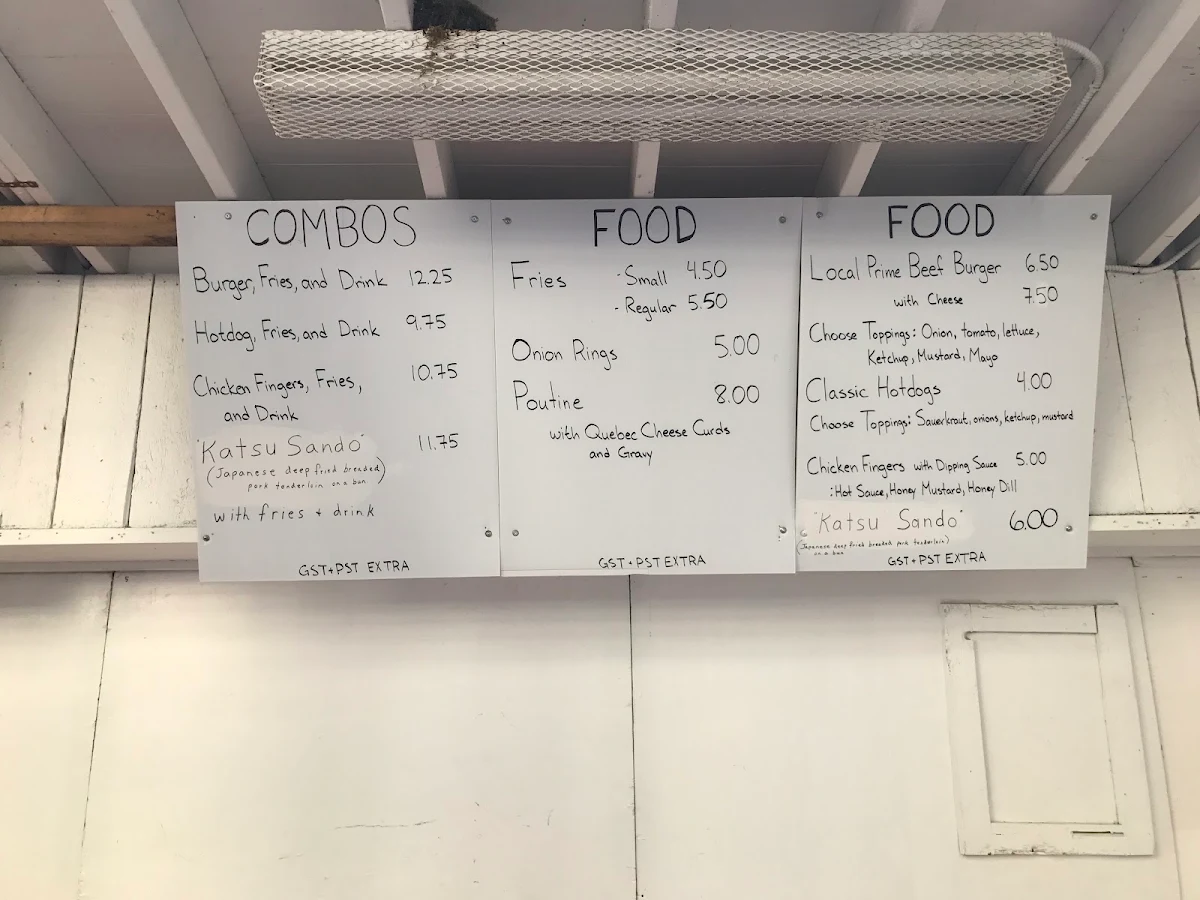 COMBOS
Burger, Fries, and Drink 12.25
Hotdog, Fries, and Drink 9.75
Chicken Fingers, Fries, 10.75
and Drink
"Katsu Sando" 11.75
(Japanese deep fried breaded
pork tenderloin on a bun)
with fries + drink
GST+PST EXTRA
FOOD
Fries - Small 4.50
- Regular 5.50
Onion Rings 5.00
Poutine 8.00
with Quebec Cheese Curds
and Gravy
GST+PST EXTRA
FOOD
Local Prime Beef Burger 6.50
with Cheese 7.50
Choose Toppings: Onion, tomato, lettuce,
Ketchup, Mustard, Mayo
Classic Hotdogs 4.00
Choose Toppings: Sauerkraut, onions, ketchup, mustard
Chicken Fingers with Dipping Sauce 5.00
: Hot Sauce, Honey Mustard, Honey Dill
"Katsu Sando" 6.00
(Japanese deep fried breaded pork tenderloin)
on a bun
GST+PST EXTRA